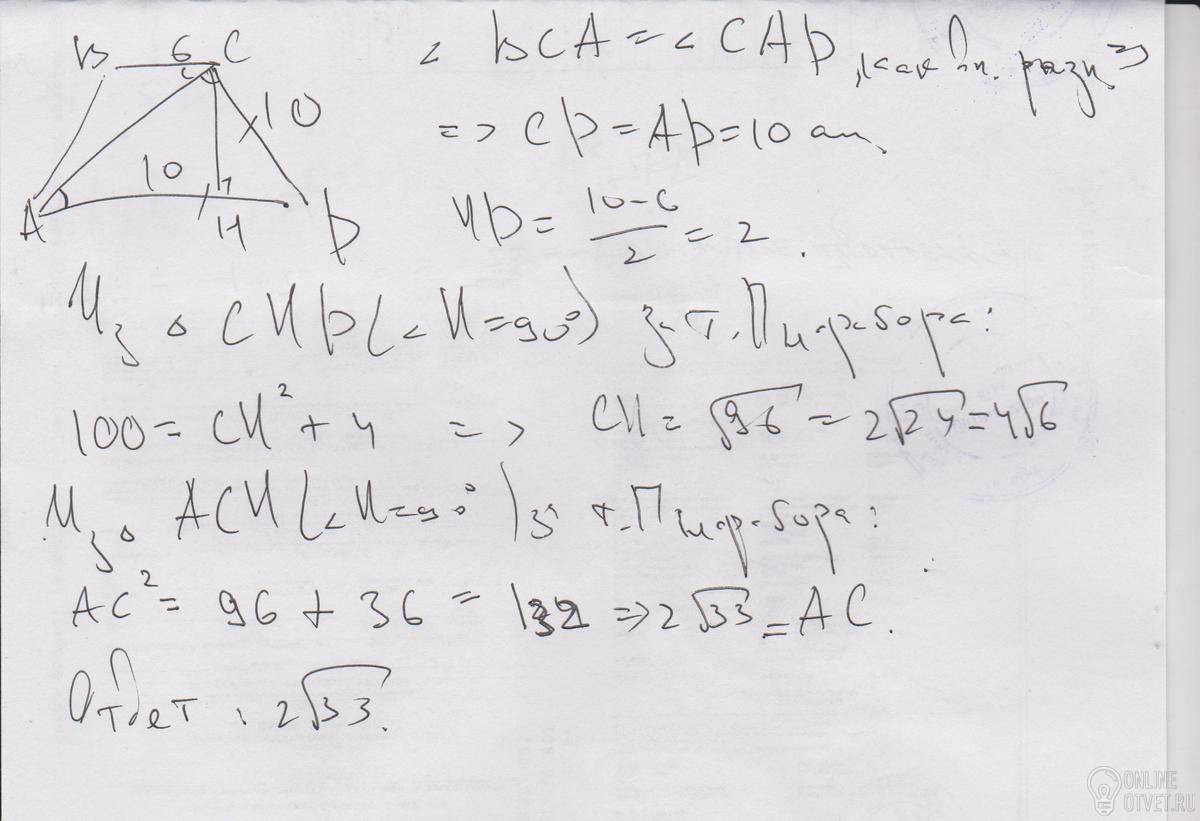 B 6 C
10
10
A H D
∠ BCA = ∠ CAD, как вн. разн =>
=> CD = AD = 10 см.
HD = (10-6)/2 = 2.
Из △ CHD (∠H=90°) за т. Пифагора:
100 = CH² + 4 => CH = √96 = 2√24 = 4√6
Из △ ACH (∠H=90°) за т. Пифагора:
AC² = 96 + 36 = 132 => 2√33 = AC.
Ответ: 2√33.
ONLINE
OTVET.RU